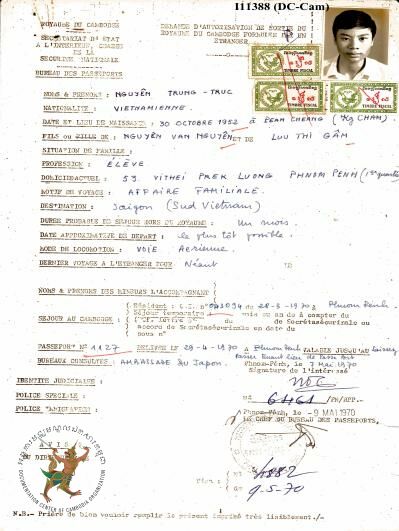 111388 (DC-Cam)
ROYAUME DU CAMBODGE
SECRETARIAT D'ETAT
A L'INTERIEUR, CHARGE
DE LA
SECURITE NATIONALE
BUREAU DES PASSEPORTS
DEMANDE D'AUTORISATION DE SORTIE DU
ROYAUME DU CAMBODGE FORMULEE PAR UN
ETRANGER
TIMBRE FISCAL
TIMBRE FISCAL
TIMBRE FISCAL
NOMS & PRENOMS : NGUYÊN TRUNG-TRUC
NATIONALITE : VIETNAMIENNE.
DATE ET LIEU DE NAISSANCE : 30 OCTOBRE 1952 à PEAM CHEANG (Kg CHAM)
FILS ou FILLE DE : NGUYÊN VAN NGUYÊN et de LUU THỊ GÂM
SITUATION DE FAMILLE :
PROFESSION : ÉLÈVE
DOMICILE ACTUEL : 59 VITHEI PREK LUONG PHNOM PENH (1er quartier)
MOTIF DU VOYAGE : AFFAIRE FAMILIALE.
DESTINATION : Saigon (Sud Vietnam)
DUREE PROBABLE DU SEJOUR HORS DU ROYAUME : Un mois.
DATE APPROXIMATIVE DE DEPART : le plus tôt possible.
MODE DE LOCOMOTION : VOIE Aerienne.
DERNIER VOYAGE A L'ETRANGER POUR Néant
NOMS & PRENOMS DES MINEURS L'ACCOMPAGNANT
SEJOUR AU CAMBODGE :
Résident : C.I. n° du 28-3-1970 à Phnom Penh
Séjour temporaire mois ou an à compter du
Cf. lettre n° du de Secrétaséeurinale ou
accord de Secrétaséeurinale en date du
sous n°
PASSEPORT N° 1127 DELIVRE LE 29-4-1970 à Phnom Penh VALABLE JUSQU'AU
BUREAUX CONSULTES : AMBASSADE du Japon.
Phnom-Penh, le 7 Mai 1970
Signature de l'intéressé
IDENTITE JUDICIAIRE :
POLICE SPECIALE :
POLICE "AMIGRATION" :
N° 6461 /PN/APP.-
Phnom-Penh, le - 9 MAI 1970
LE CHEF DU BUREAU DES PASSEPORTS,
AVIS
DU DIRECT
Visa :
N° 4882
9-5-70
DOCUMENTATION CENTER OF CAMBODIA ORGANIZATION
N.B.- Prière de bien vouloir remplir le présent imprimé très lisiblement./-